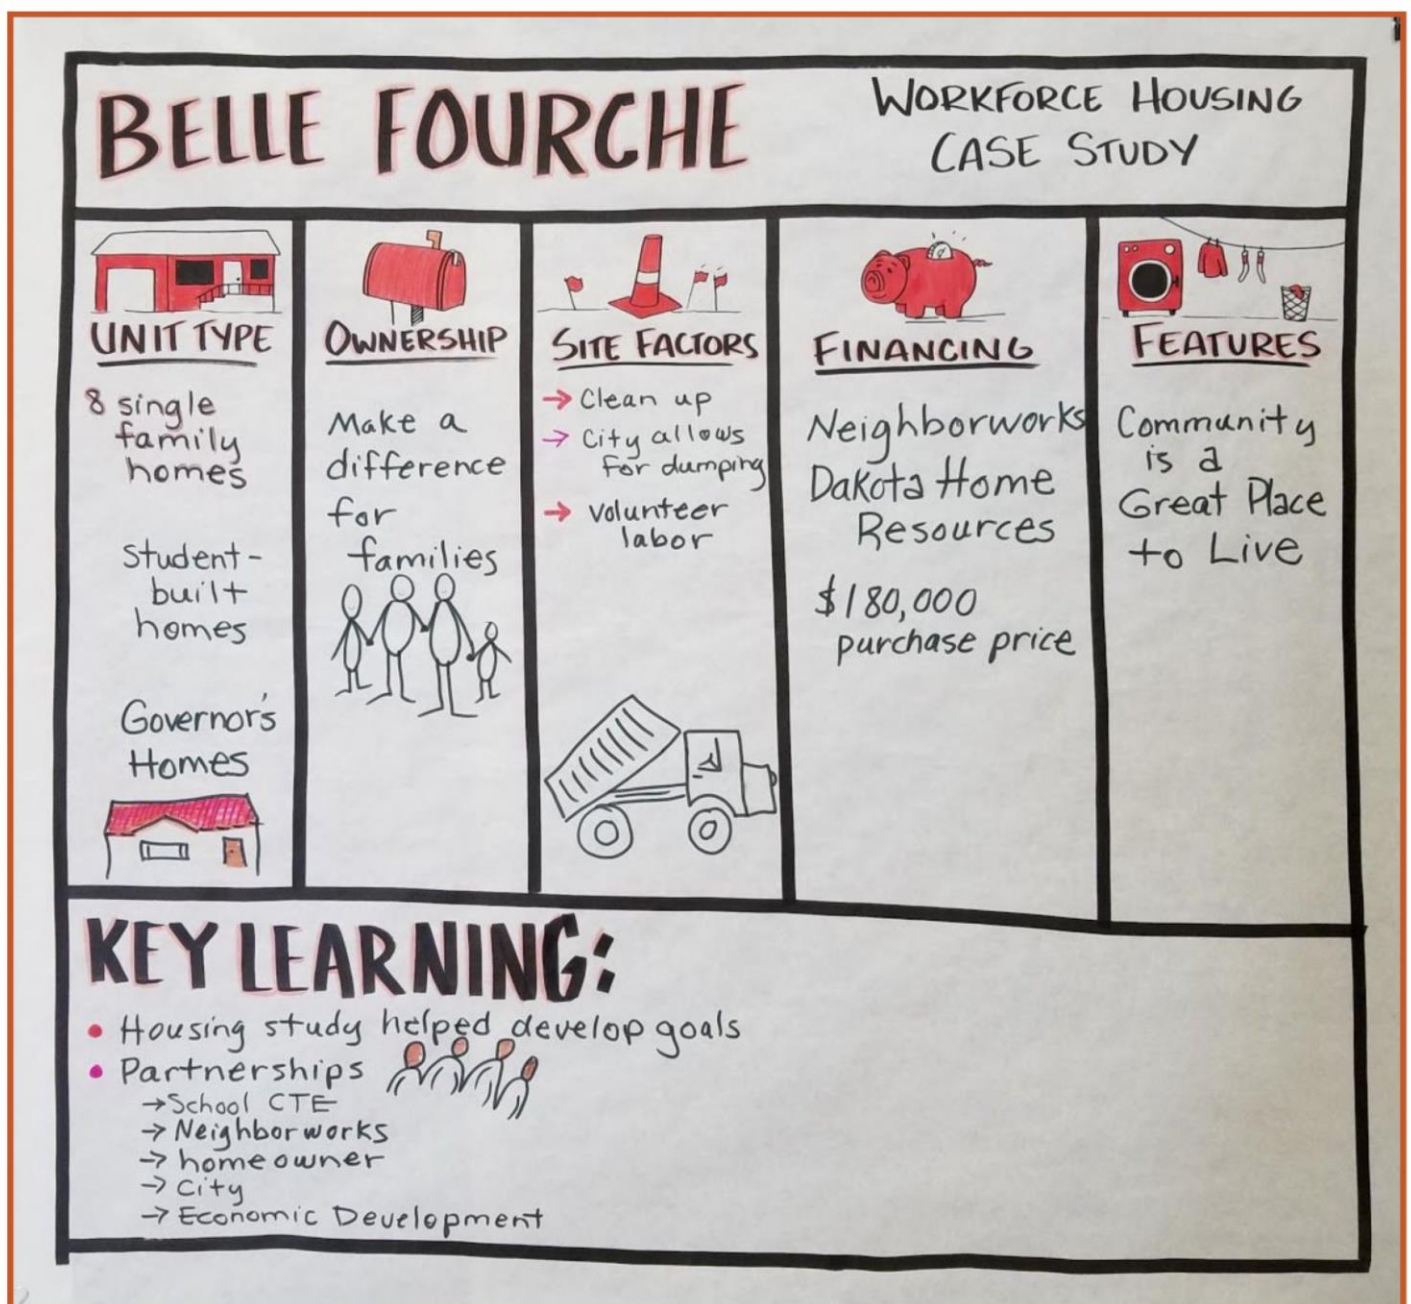 BELLE FOURCHE
WORKFORCE HOUSING
CASE STUDY
UNIT TYPE
8 single
family
homes
Student-
built
homes
Governor's
Homes
OWNERSHIP
Make a
difference
for
families
SITE FACTORS
→ Clean up
→ City allows
for dumping
→ volunteer
labor
FINANCING
Neighborworks
Dakota Home
Resources
$180,000
purchase price
FEATURES
Community
is a
Great Place
to Live
KEY LEARNING:
• Housing study helped develop goals
• Partnerships
→ School CTE
→ Neighborworks
→ homeowner
→ City
→ Economic Development